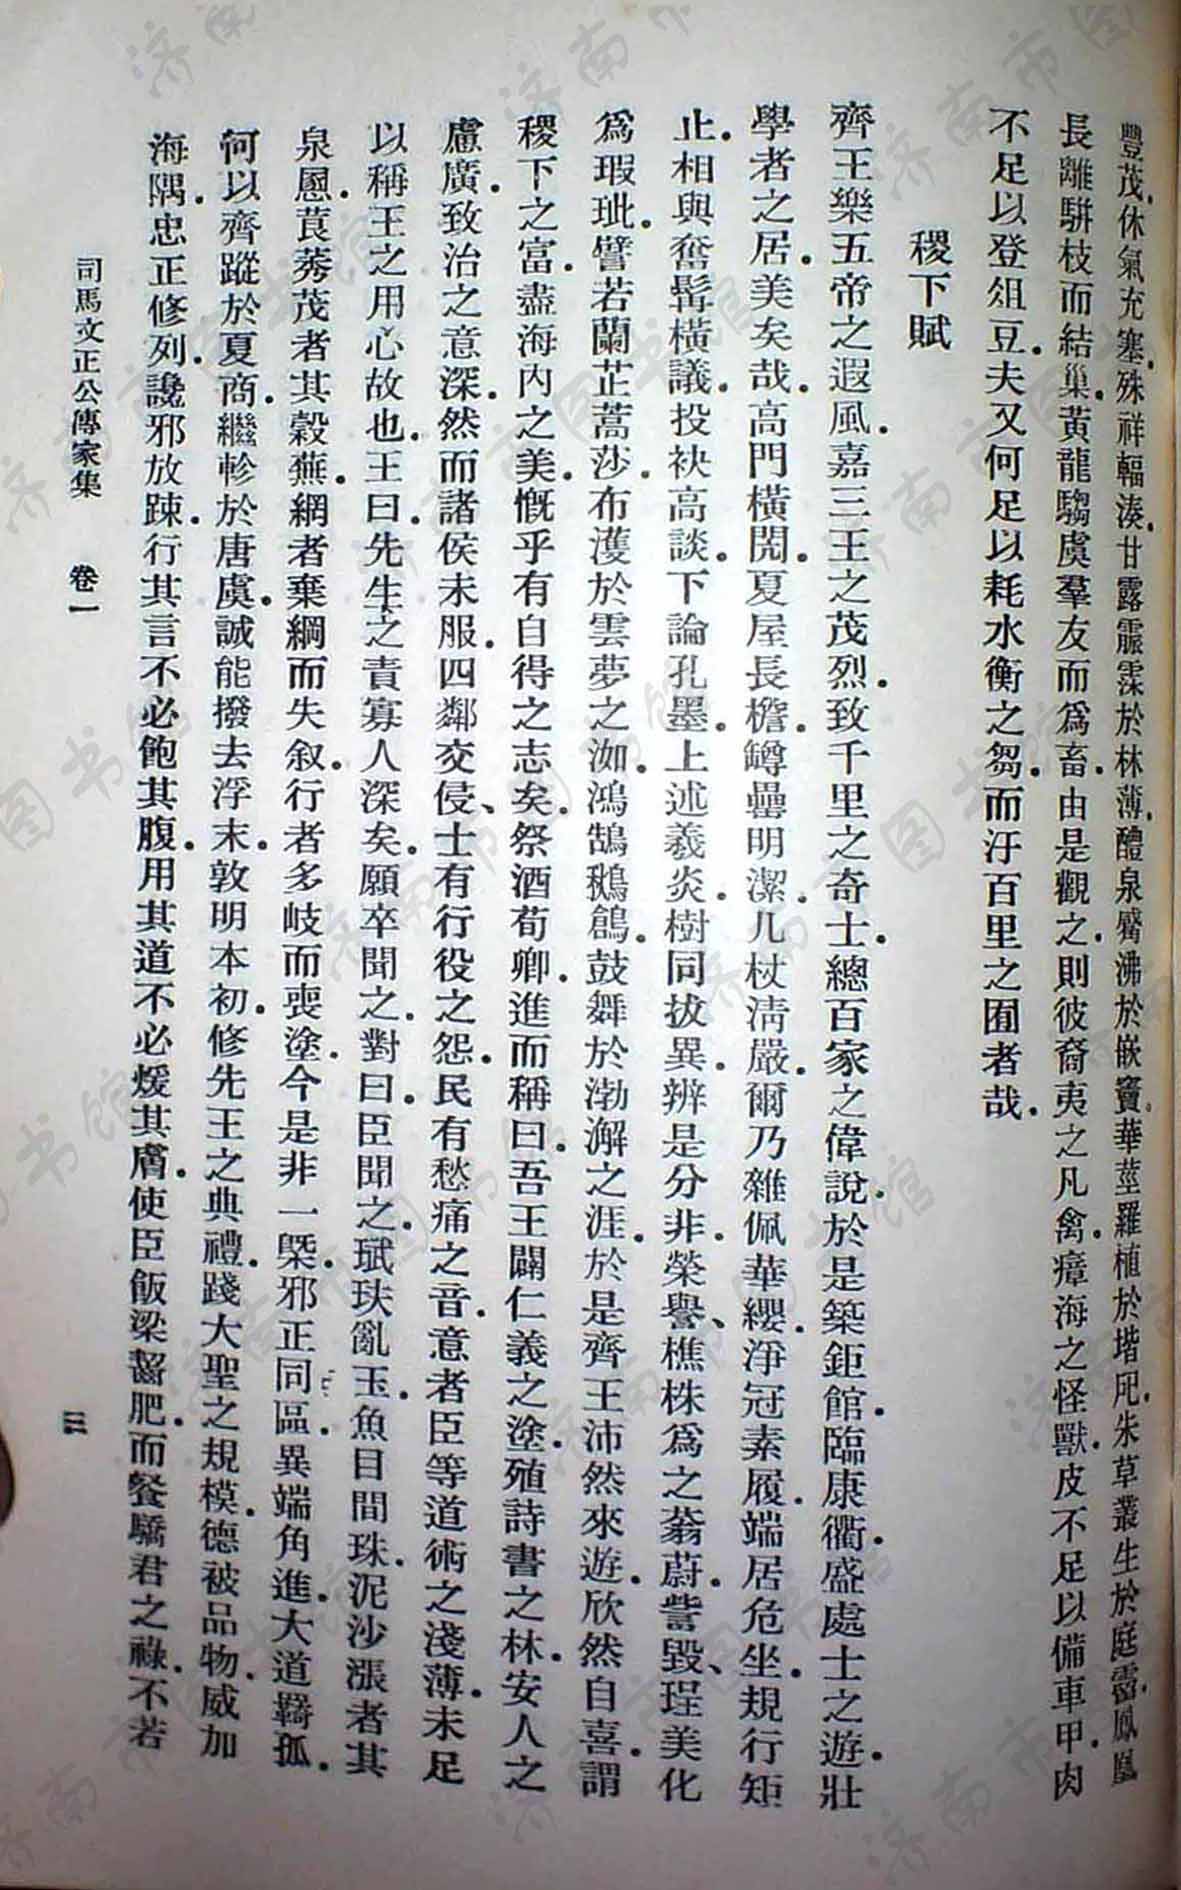 豐茂.休氣充塞.殊祥輻湊.甘露霢霂於林薄.醴泉觱沸於嵌竇.華莖羅植於堦戺.朱草叢生於庭霤.鳳凰
長離駢枝而結巢.黃龍騶虞羣友而爲畜.由是觀之.則彼裔夷之凡禽.瘴海之怪獸.皮不足以備車甲.肉
不足以登俎豆.夫又何足以耗水衡之芻.而汙百里之囿者哉.
稷下賦
齊王樂五帝之遐風.嘉三王之茂烈.致千里之奇士.總百家之偉說.於是築鉅館.臨康衢.盛處士之遊.壯
學者之居.美矣哉.高門橫閌.夏屋長檐.罇罍明潔.几杖淸嚴.爾乃雜佩華纓.淨冠素履.端居危坐.規行矩
止.相與奮髯橫議.投袂高談.下論孔墨.上述羲炎.樹同拔異.辨是分非.榮譽、樵株爲之蓊蔚.訾毀、珵美化
爲瑕玼.譬若蘭芷蒿莎.布濩於雲夢之洳.鴻鵠鵝鶬.鼓舞於渤澥之涯.於是齊王沛然來遊.欣然自喜.謂
稷下之富.盡海內之美.慨乎有自得之志矣.祭酒荀卿.進而稱曰.吾王闢仁義之塗.殖詩書之林.安人之
慮廣.致治之意深.然而諸侯未服.四鄰交侵、士有行役之怨.民有愁痛之音.意者臣等道術之淺薄.未足
以稱王之用心故也.王曰.先生之責寡人深矣.願卒聞之.對曰.臣聞之.珷玞亂玉.魚目間珠.泥沙漲者其
泉慁.莨莠茂者其穀蕪.網者棄綱而失叙.行者多岐而喪塗.今是非一槩.邪正同區.異端角進.大道羇孤.
何以齊蹤於夏商.繼軫於唐虞.誠能撥去浮末.敦明本初.修先王之典禮.踐大聖之規模.德被品物.威加
海隅.忠正修列.讒邪放踈.行其言不必飽其腹.用其道不必煖其膚.使臣飯梁齧肥.而餐驕君之祿.不若
司馬文正公傳家集　卷一
三